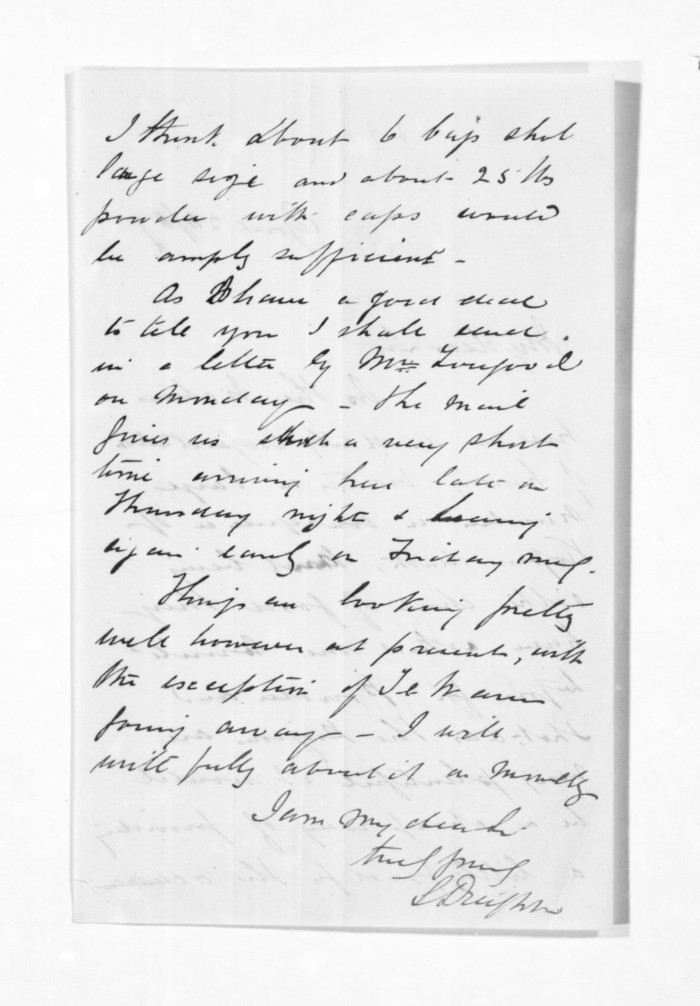 I think about 6 bags shot
large size and about 25 lbs
powder with caps would
be amply sufficient -
As I have a good deal
to tell you I shall send
in a letter by Mr. Toogood
on Monday - The mail
gives us such a very short
time arriving here late on
Thursday night & leaving
again early on Friday mg.
Things are looking pretty
well however at present, with
the exception of Te Waru
going away - I will
write fully about it on Monday
I am My dear Sir
truly yours
S Deighton